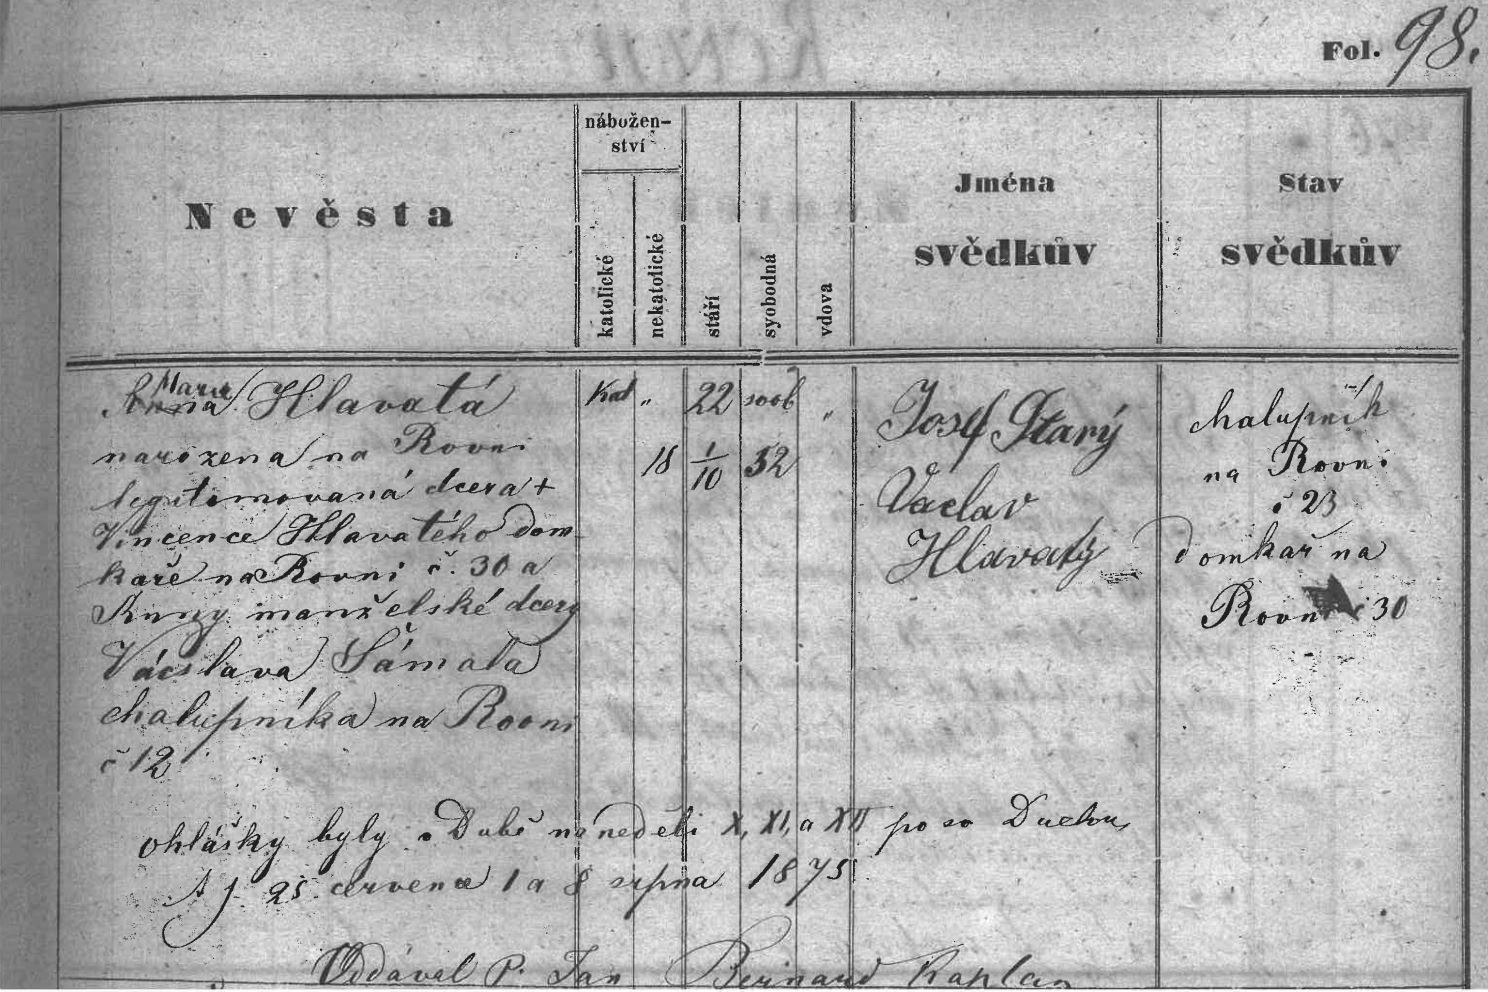 Fol. 98.
Nevěsta
nábožen-
ství
katolické
nekatolické
stáří
svobodná
vdova
Jména
svědkův
Stav
svědkův
Marie
Anna Hlavatá
narozena na Rovni
legitimovaná dcera +
Vincence Hlavatého dom-
kaře na Rovni č. 30 a
Anny manželské dcery
Vácslava Šámala
chalupníka na Rovni
č 12
Kat " 22 svob "
18 1/10 52
Josef Starý
Vaclav
Hlavatý
chalupník
na Rovni
č 23
domkař na
Rovni č 30
ohlášky byly v Dubě na neděli X, XI, a XII po sv Duchu
t j. 25. července 1 a 8 srpna 1875
Oddával P. Jan Bernard Kaplan